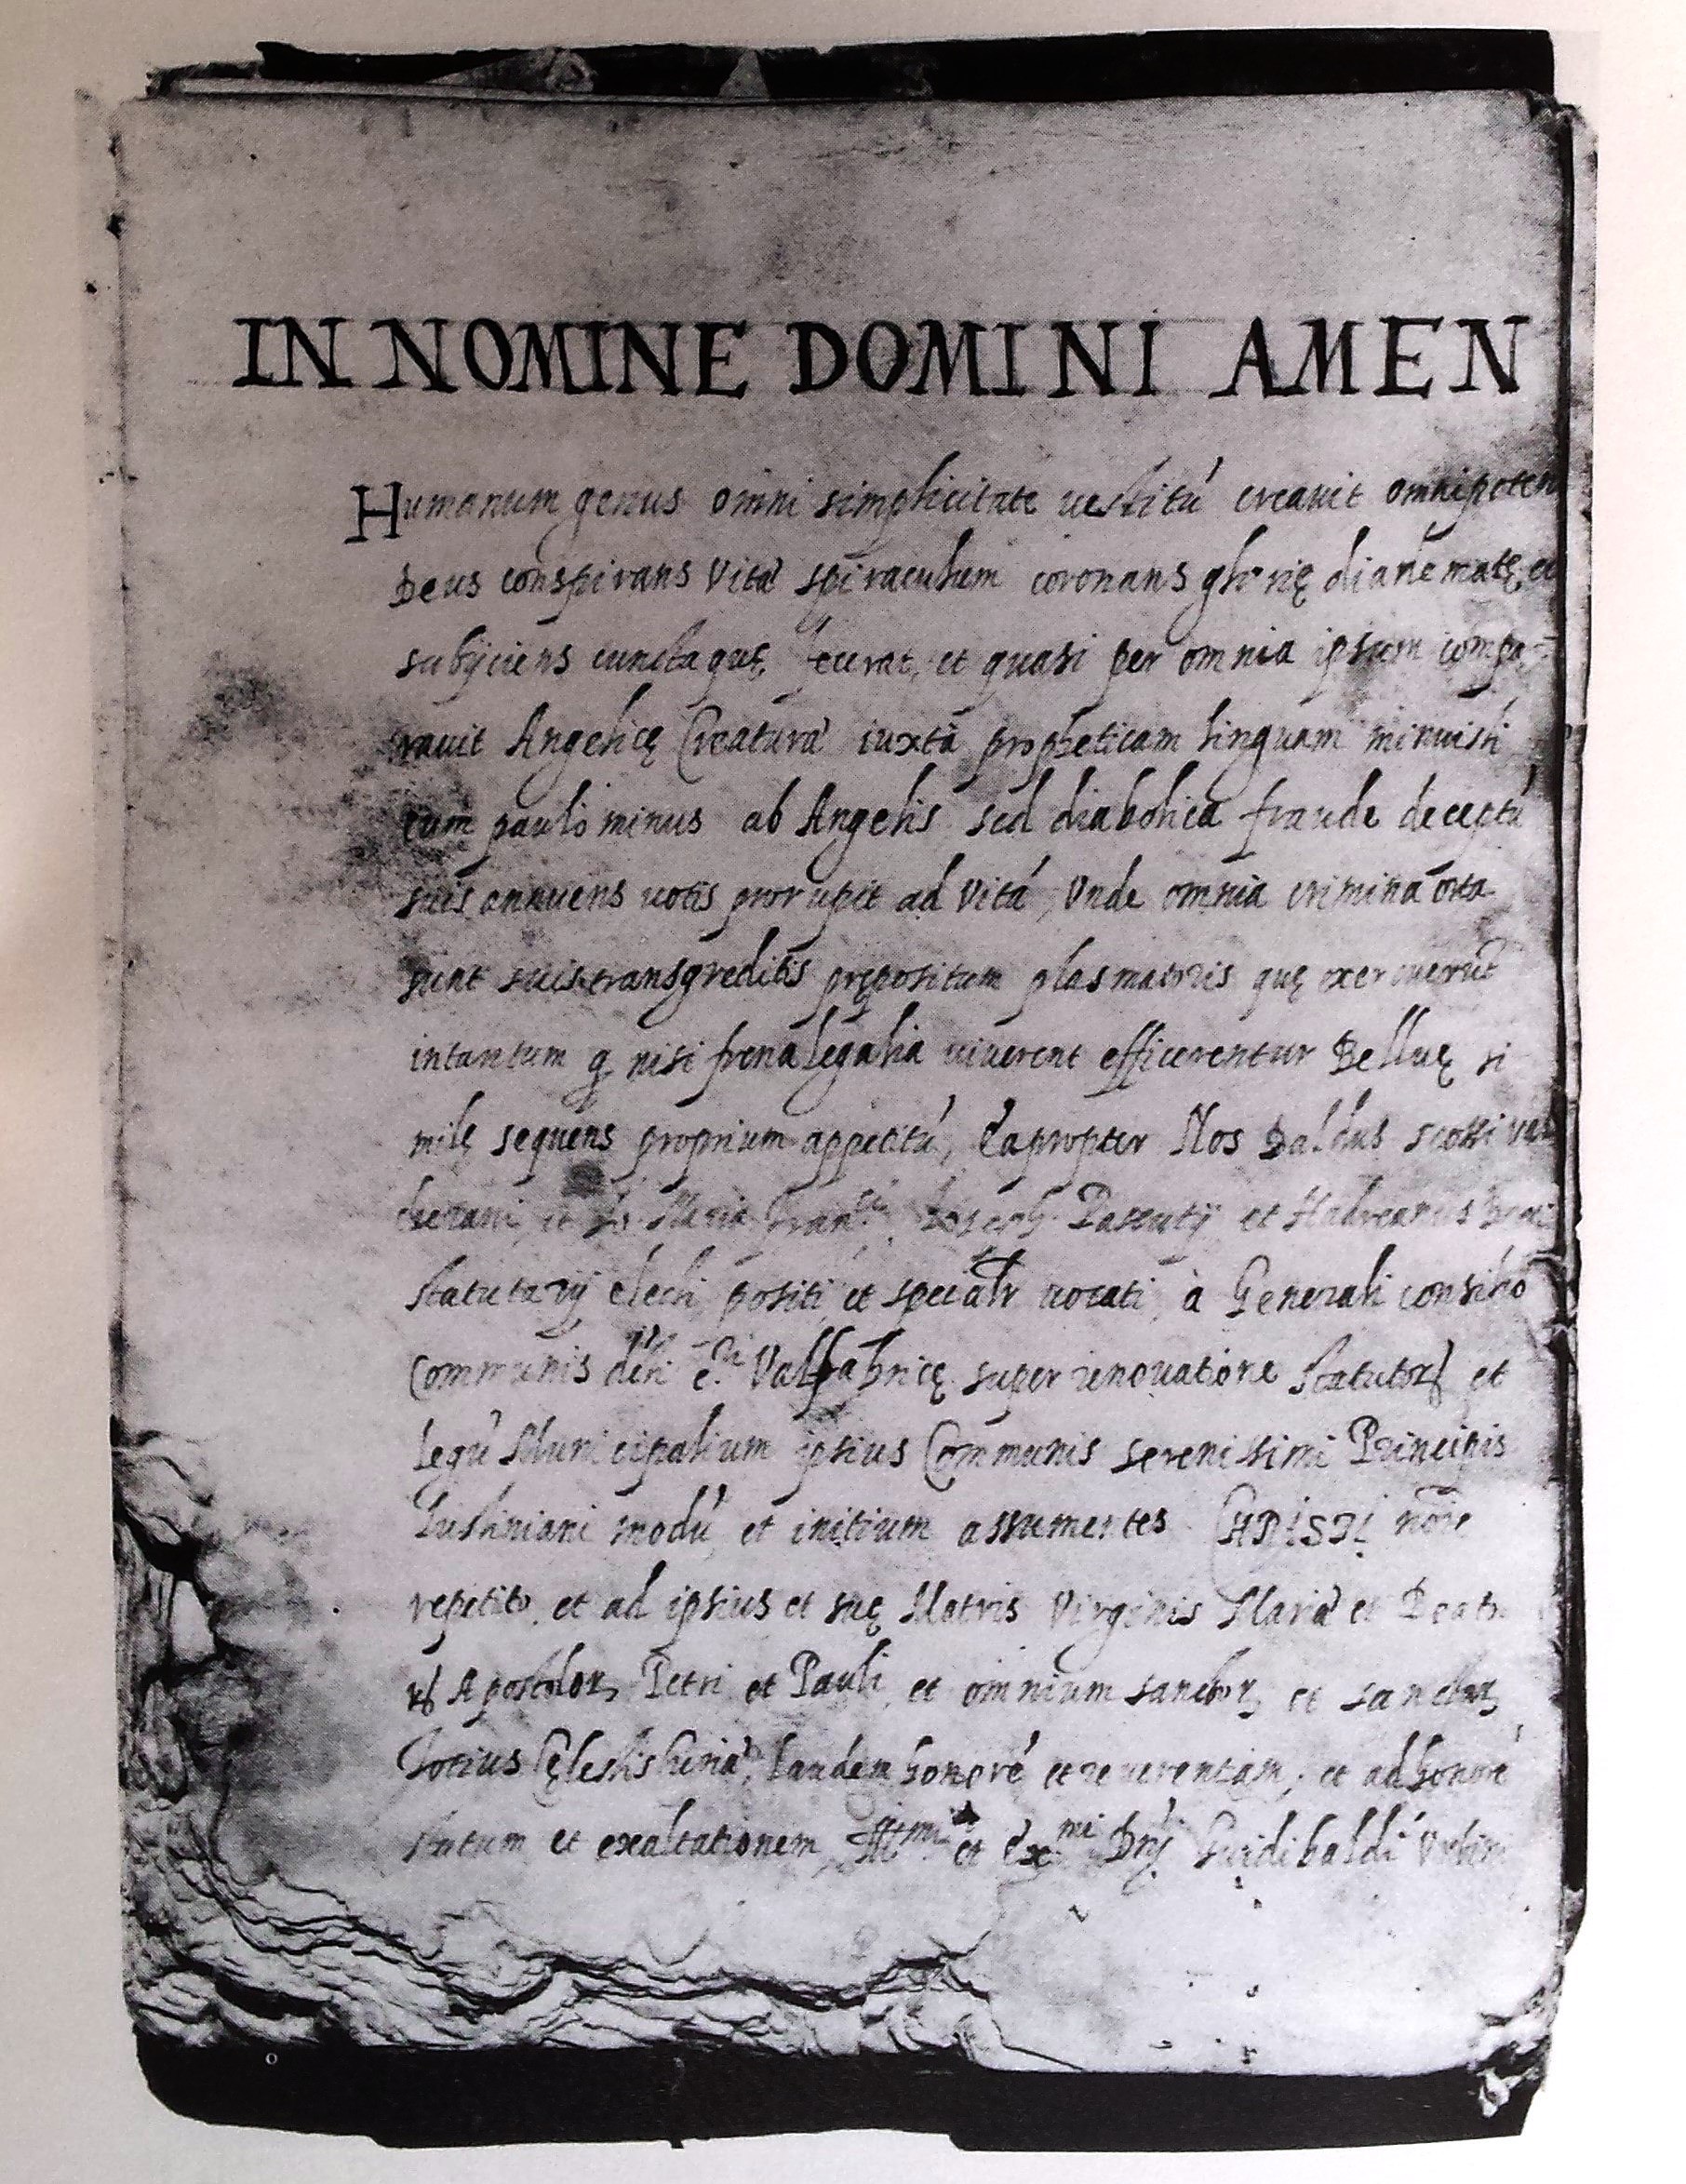 IN NOMINE DOMINI AMEN
Humanum genus omni simplicitate uestitú creauit omnipoten
Deus conspirans Vitá spiraculum coronans glorię diademate, et
subijciens cuncta quę fecerat, et quasi per omnia ipsum compa-
rauit Angelicę Creaturá iuxta propheticam linguam minuisti
eum paulo minus ab Angelis sed diabolica fraude deceptú
suis annuens uotis prorupit ad Vitá, Vnde omnia crimina orta
sunt suis transgreditis prępositum plasmatoris quę exercuerút
intantum q nisi frena legalia uiuerent efficerentur Belluę si
milę sequens proprium appetitú, Eapropter Nos Baldus scotti
et Maria Ioseph Pascutij et Hadreanus
statutarij electi, positi et specialr uocati, à Generali consilio
Communis Valfabricę super renouatione Statutoꝝ et
legú Municipalium ipsius Communis serenissimi Principis
Iustiniani modú et initium assumentes CHRISTI nõie
repetito, et ad ipsius et suę Matris Virginis Mariá et Beato
ꝝ Apostoloꝝ Petri et Pauli, et omnium sanctoꝝ et sanctaꝝ
totius Cęlestis Curiá, laudem honoré et reuerentiam, et ad honoré
statum et exaltationem Illmi et Exmi Dnj Guidibaldi Vrbini